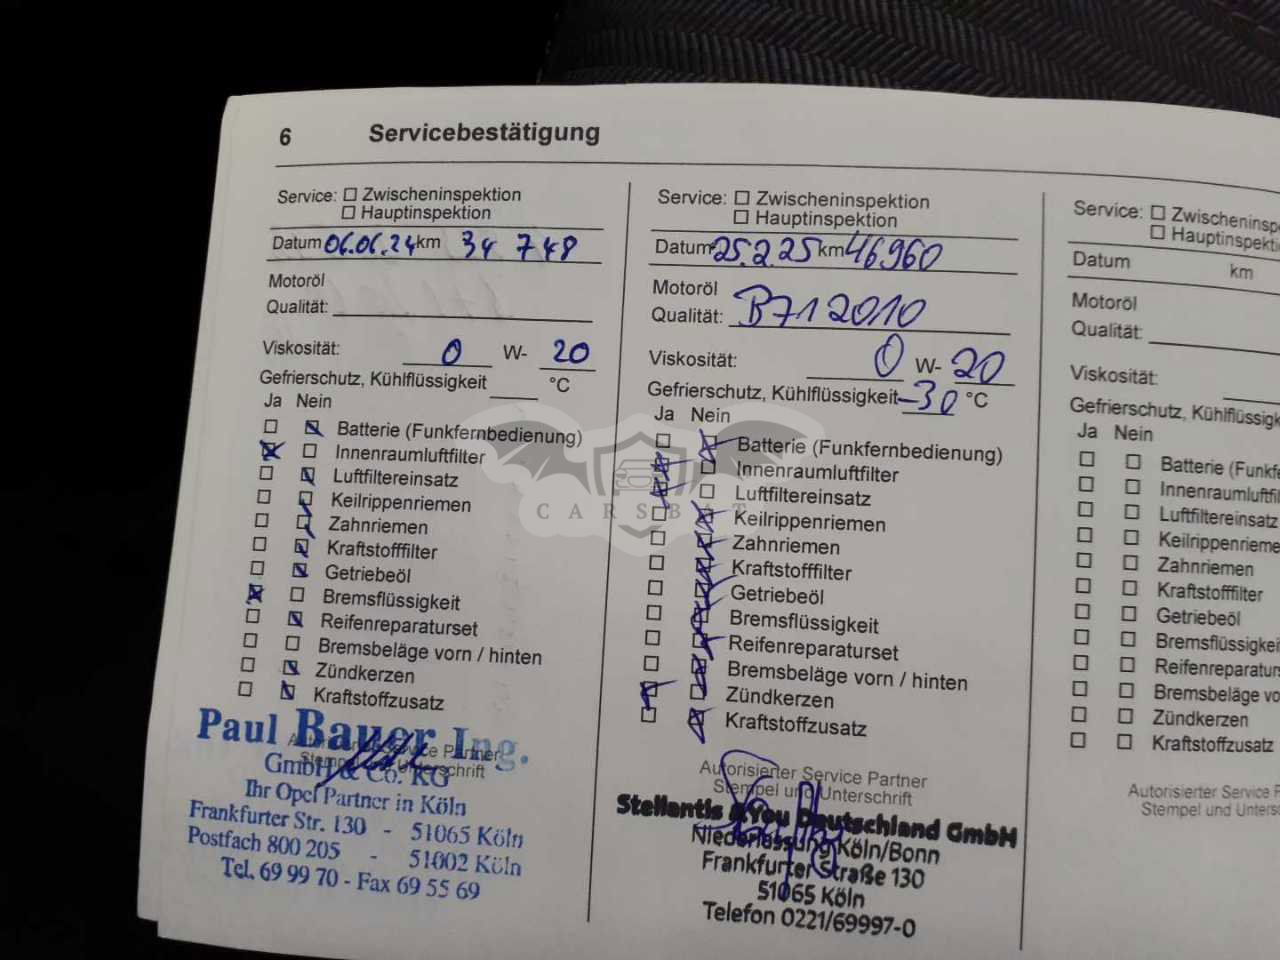 6 Servicebestätigung
Service: Zwischeninspektion
Hauptinspektion
Datum 06.06.24 km 34 748
Motoröl
Qualität:
Viskosität: 0 W- 20
Gefrierschutz, Kühlflüssigkeit °C
Ja Nein
Batterie (Funkfernbedienung)
Innenraumluftfilter
Luftfiltereinsatz
Keilrippenriemen
Zahnriemen
Kraftstofffilter
Getriebeöl
Bremsflüssigkeit
Reifenreparaturset
Bremsbeläge vorn / hinten
Zündkerzen
Kraftstoffzusatz
Autorisierter Service Partner
Stempel und Unterschrift
Paul Bauer Ing.
GmbH & Co. KG
Ihr Opel Partner in Köln
Frankfurter Str. 130 - 51065 Köln
Postfach 800 205 - 51002 Köln
Tel. 69 99 70 - Fax 69 55 69
Service: Zwischeninspektion
Hauptinspektion
Datum 25.2.25 km 46960
Motoröl
Qualität: B712010
Viskosität: 0 W- 20
Gefrierschutz, Kühlflüssigkeit -30 °C
Ja Nein
Batterie (Funkfernbedienung)
Innenraumluftfilter
Luftfiltereinsatz
Keilrippenriemen
Zahnriemen
Kraftstofffilter
Getriebeöl
Bremsflüssigkeit
Reifenreparaturset
Bremsbeläge vorn / hinten
Zündkerzen
Kraftstoffzusatz
Autorisierter Service Partner
Stempel und Unterschrift
Stellantis &You Deutschland GmbH
Niederlassung Köln/Bonn
Frankfurter Straße 130
51065 Köln
Telefon 0221/69997-0
Service: Zwischeninsp
Hauptinspekti
Datum km
Motoröl
Qualität:
Viskosität:
Gefrierschutz, Kühlflüssigk
Ja Nein
Batterie (Funkfe
Innenraumluftfil
Luftfiltereinsatz
Keilrippenrieme
Zahnriemen
Kraftstofffilter
Getriebeöl
Bremsflüssigkei
Reifenreparaturs
Bremsbeläge vo
Zündkerzen
Kraftstoffzusatz
Autorisierter Service P
Stempel und Untersc
CARSBAT